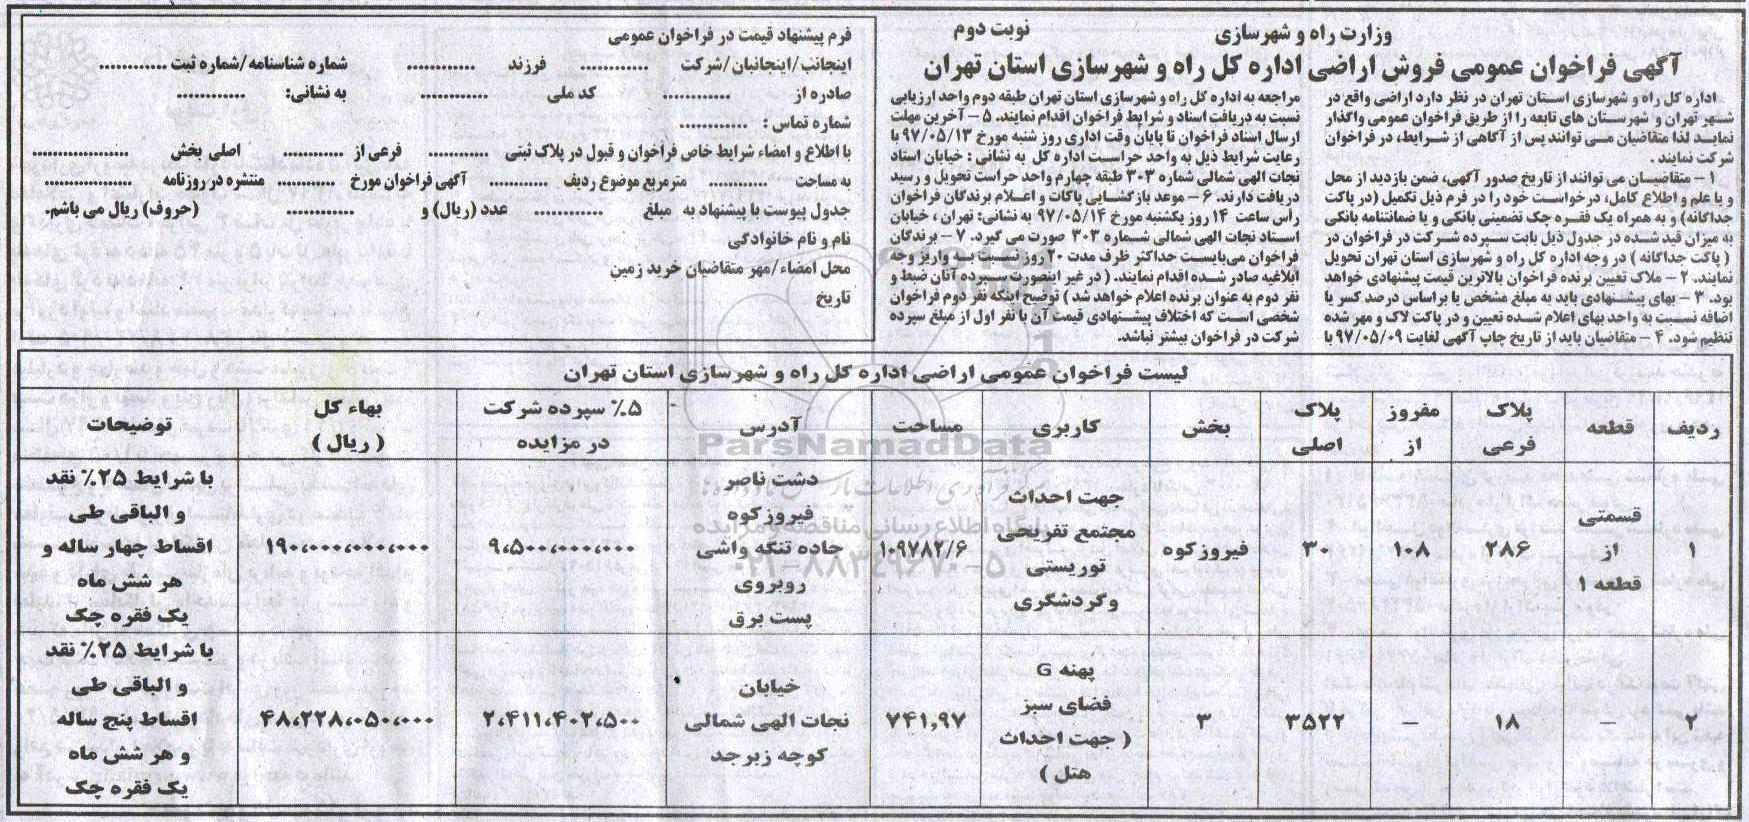 وزارت راه و شهرسازی
نوبت دوم
آگهی فراخوان عمومی فروش اراضی اداره کل راه و شهرسازی استان تهران
اداره کل راه و شهرسازی استان تهران در نظر دارد اراضی واقع در
شهر تهران و شهرستان های تابعه را از طریق فراخوان عمومی واگذار
نماید لذا متقاضیان می توانند پس از آگاهی از شرایط، در فراخوان
شرکت نمایند .
۱ – متقاضیان می توانند از تاریخ صدور آگهی، ضمن بازدید از محل
و یا علم و اطلاع کامل، درخواست خود را در فرم ذیل تکمیل (در پاکت
جداگانه) و به همراه یک فقره چک تضمینی بانکی و یا ضمانتنامه بانکی
به میزان قید شده در جدول ذیل بابت سپرده شرکت در فراخوان در
( پاکت جداگانه ) در وجه اداره کل راه و شهرسازی استان تهران تحویل
نمایند. ۲ – ملاک تعیین برنده فراخوان بالاترین قیمت پیشنهادی خواهد
بود. ۳ – بهای پیشنهادی باید به مبلغ مشخص یا براساس درصد کسر یا
اضافه نسبت به واحد بهای اعلام شده تعیین و در پاکت لاک و مهر شده
تنظیم شود. ۴ – متقاضیان باید از تاریخ چاپ آگهی لغایت ۹۷/۰۵/۰۹ با
مراجعه به اداره کل راه و شهرسازی استان تهران طبقه دوم واحد ارزیابی
نسبت به دریافت اسناد و شرایط فراخوان اقدام نمایند. ۵ – آخرین مهلت
ارسال اسناد فراخوان تا پایان وقت اداری روز شنبه مورخ ۹۷/۰۵/۱۳ با
رعایت شرایط ذیل به واحد حراست اداره کل به نشانی : خیابان استاد
نجات الهی شمالی شماره ۳۰۳ طبقه چهارم واحد حراست تحویل و رسید
دریافت دارند. ۶ – موعد بازگشایی پاکات و اعلام برندگان فراخوان
رأس ساعت ۱۴ روز یکشنبه مورخ ۹۷/۰۵/۱۴ به نشانی: تهران ، خیابان
استاد نجات الهی شمالی شماره ۳۰۳ صورت می گیرد. ۷ – برندگان
فراخوان می‌بایست حداکثر ظرف مدت ۲۰ روز نسبت به واریز وجه
ابلاغیه صادر شده اقدام نمایند. ( در غیر اینصورت سپرده آنان ضبط و
نفر دوم به عنوان برنده اعلام خواهد شد ) توضیح اینکه نفر دوم فراخوان
شخصی است که اختلاف پیشنهادی قیمت آن با نفر اول از مبلغ سپرده
شرکت در فراخوان بیشتر نباشد.
فرم پیشنهاد قیمت در فراخوان عمومی
اینجانب/اینجانبان/شرکت ............ فرزند ............ شماره شناسنامه/شماره ثبت ............
صادره از ............ کد ملی ............ به نشانی: ............
شماره تماس : ............
با اطلاع و امضاء شرایط خاص فراخوان و قبول در پلاک ثبتی ............ فرعی از ............ اصلی بخش ............
به مساحت ............ مترمربع موضوع ردیف ............ آگهی فراخوان مورخ ............ منتشره در روزنامه ............
جدول پیوست با پیشنهاد به مبلغ ............ عدد (ریال) و ............ (حروف) ریال می باشم.
نام و نام خانوادگی
محل امضاء/مهر متقاضیان خرید زمین
تاریخ
لیست فراخوان عمومی اراضی اداره کل راه و شهرسازی استان تهران
ردیف | قطعه | پلاک فرعی | مفروز از | پلاک اصلی | بخش | کاربری | مساحت | آدرس | ۵٪ سپرده شرکت در مزایده | بهاء کل ( ریال ) | توضیحات
۱ | قسمتی از قطعه ۱ | ۲۸۶ | ۱۰۸ | ۳۰ | فیروزکوه | جهت احداث مجتمع تفریحی توریستی وگردشگری | ۱۰۹۷۸۲/۶ | دشت ناصر فیروزکوه جاده تنگه واشی روبروی پست برق | ۹،۵۰۰،۰۰۰،۰۰۰ | ۱۹۰،۰۰۰،۰۰۰،۰۰۰ | با شرایط ۲۵٪ نقد و الباقی طی اقساط چهار ساله و هر شش ماه یک فقره چک
۲ | – | ۱۸ | – | ۳۵۲۲ | ۳ | پهنه G فضای سبز ( جهت احداث هتل ) | ۷۴۱,۹۷ | خیابان نجات الهی شمالی کوچه زبرجد | ۲،۴۱۱،۴۰۲،۵۰۰ | ۴۸،۲۲۸،۰۵۰،۰۰۰ | با شرایط ۲۵٪ نقد و الباقی طی اقساط پنج ساله و هر شش ماه یک فقره چک
ParsNamadData
پایگاه اطلاع رسانی مناقصه و مزایده
۰۲۱-۸۸۳۴۹۶۷۰-۵